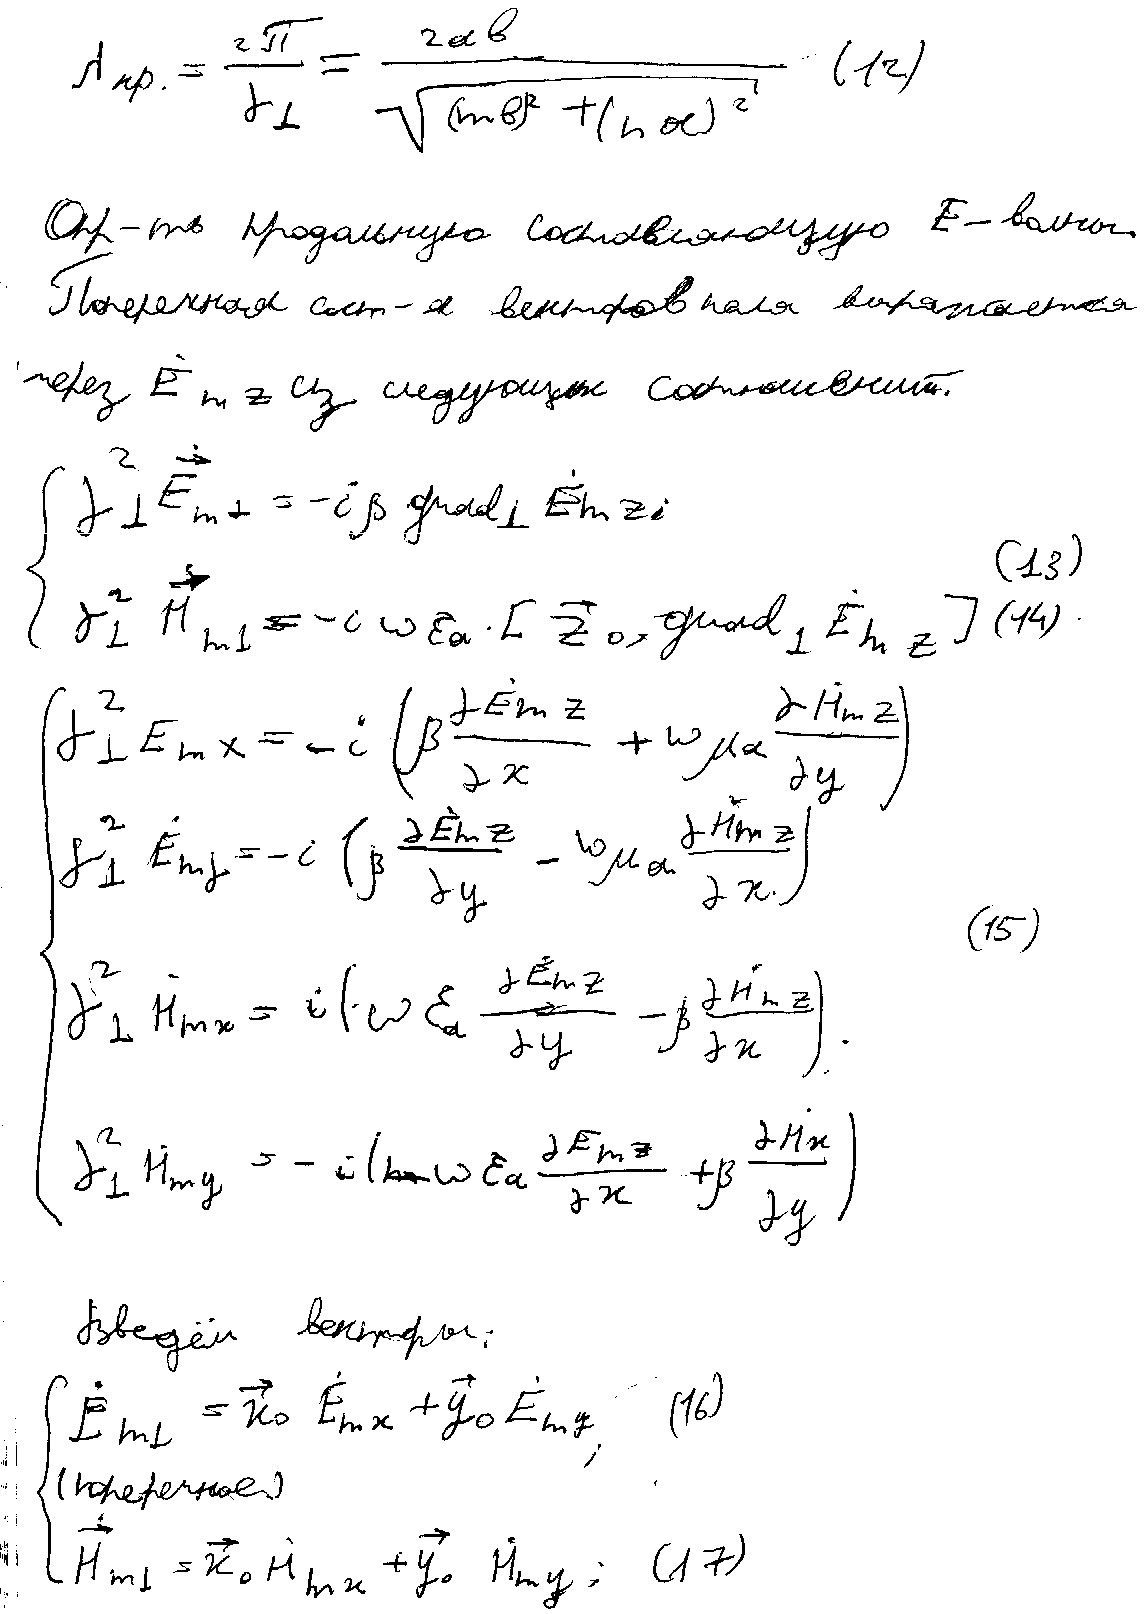 λкр. = 2π/γ⊥ = 2ab/√((mb)² + (na)²) (12)
Опр-ть продольную составляющую E-волны.
Поперечная сост-я векторов поля выражается
через Ė m z из следующих соотношений.
γ⊥² Ė⃗ m⊥ = -iβ grad⊥ Ė m z i
(13)
γ⊥² Ḣ⃗ m⊥ = -iωεa · [z⃗₀, grad⊥ Ė m z] (14).
γ⊥² E m x = -i (β ∂Ė m z/∂x + ωμa ∂Ḣ m z/∂y)
γ⊥² Ė m y = -i (β ∂Ė m z/∂y - ωμa ∂Ḣ m z/∂x.)
(15)
γ⊥² Ḣ m x = i (ωεa ∂Ė m z/∂y - β ∂Ḣ m z/∂x).
γ⊥² Ḣ m y = -i (ωεa ∂E m z/∂x + β ∂Ḣ x/∂y)
Введём векторы:
Ė m⊥ = x⃗₀ Ė m x + y⃗₀ Ė m y; (16)
(поперечное)
Ḣ⃗ m⊥ = x⃗₀ Ḣ m x + y⃗₀ Ḣ m y; (17)